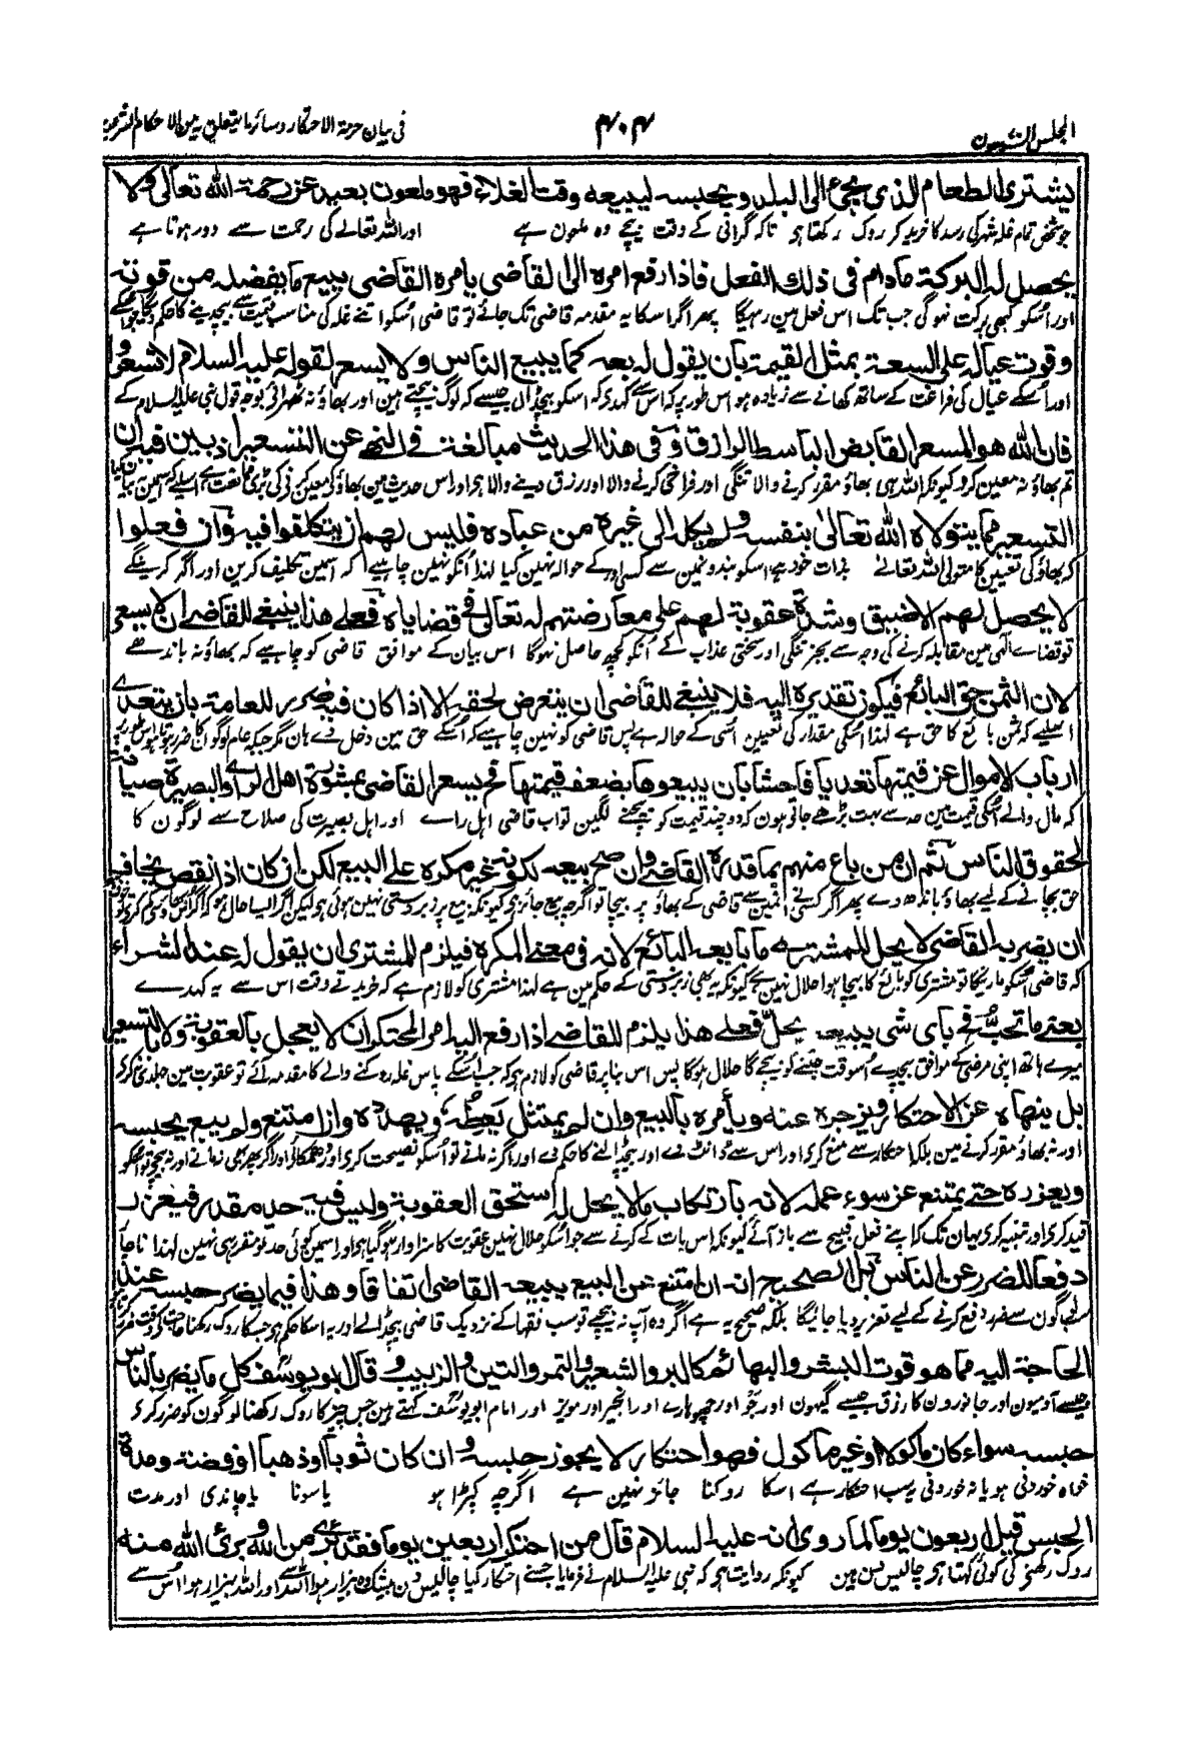 المجلس الستون
۴۰۴
فی بیان حرمة الاحتکار وسائر ما یتعلق به من الاحکام الشرعیة
یشتری الطعام الذی یجیء الی البلد ویحبسه لیبیعه وقت الغلاء فهو ملعون بعید عن رحمة الله تعالی ولا
جو شخص تمام غلہ شہر کی رسد کا خرید کر روک رکھتا ہو تاکہ گرانی کے وقت بیچے وہ ملعون ہے اور اللہ تعالے کی رحمت سے دور ہوتا ہے
یحصل له البرکة مادام فی ذلك الفعل فاذا رفع امره الی القاضی یامره القاضی ببیع ما یفضل من قوته
اور اسکو کبھی برکت نہوگی جب تک اس فعل مین رہیگا پھر اگر اسکا یہ مقدمہ قاضی تک جائے تو قاضی اسکو اتنے غلہ کی مناسب قیمت سے بیچدینے کا حکم دیگا جو اسکے
وقوت عیاله علی السعة بمثل القیمة بان یقول له بعه کما یبیع الناس ولا یسعر لقوله علیه السلام لا تسعروا
اور اسکے عیال کی فراغت کے ساتھ کھانے سے زیادہ ہو اس طور پر کہ اس سے کہدی کہ اسکو بیچڈال جیسے کہ لوگ بیچتے ہین اور بھاؤ نہ ٹھرائی بوجہ قول نبی علیہ السلام کے
فان الله هو المسعر القابض الباسط الرازق وفی هذا الحدیث مبالغة فی النهی عن التسعیر اذ بین فیه ان
تم بھاؤ نہ معین کرو کیونکہ اللہ ہی بھاؤ مقرر کرنے والا تنگی اور فراخی کرنے والا اور رزق دینے والا ہی اور اس حدیث مین بھاؤ کی معین کرنے کی بڑی ممانعت ہے اسلیے کہ اسمین بیان کیا
التسعیر مما یتولاه الله تعالی بنفسه ولم یکله الی غیره من عباده فلیس لهم ان یتکلفوا فیه وان فعلوا
کہ بھاؤ کی تعیین کا متولی اللہ تعالے بذات خود ہے اسکو بندونمین سے کسی اور کے حوالہ نہین کیا لہذا انکو نہین چاہیے کہ اسمین تکلیف کرین اور اگر کرینگے
لا یحصل لهم الا ضیق وشدة عقوبة لهم علی معارضتهم له تعالی فی قضایاه فعلی هذا ینبغی للقاضی ان لا یسعر
تو قضاے الٰہی مین مقابلہ کرنے کی وجہ سے بجز تنگی اور سختی عذاب کے انکو کچھ حاصل نہوگا اس بیان کے موافق قاضی کو چاہیے کہ بھاؤ نہ باندھے
لان الثمن حق البائع فیکون تقدیره الیه فلا ینبغی للقاضی ان یتعرض لحقه الا اذا کان فیه ضرر للعامة بان یتعدی
اسلیے کہ ثمن بائع کا حق ہے لہذا اسکی مقدار کی تعیین اسی کے حوالہ ہے پس قاضی کو نہین چاہیے کہ اسکے حق مین دخل دے ہان مگر جبکہ عام لوگون کا ضرر ہوتا ہو اس طور پر
ارباب الاموال عن قیمتها تعدیا فاحشا بان یبیعوها بضعف قیمتها فح یسعر القاضی بمشورة اهل الرای والبصیرة صیانة
کہ مال والے اسکی قیمت مین حد سے بہت بڑھے جاتی ہون کہ دو چند قیمت کو بیچنے لگین تواب قاضی اہل راے اور اہل بصیرت کی صلاح سے لوگون کا
لحقوق الناس ثم ان من باع منهم بما قدره القاضی وان صح بیعه لکونه غیر مکره علی البیع لکن ان کان اذا نقص یخاف
حق بچانے کے لیے بھاؤ باندھ دے پھر اگر کسی نے انمین سے قاضی کے بھاؤ پر بیچا تو اگرچہ بیع جائز ہی کیونکہ بیع پر زبردستی نہین ہوئی ہو لیکن اگر ایسا حال ہو کہ
ان یضربه القاضی لا یحل للمشتری ما بایعه البائع لانه فی معنی المکره فیلزم للمشتری ان یقول له عند الشراء
کہ قاضی اسکو ماریگا تو مشتری کو بائع کا بیچا ہوا حلال نہین ہے کیونکہ یہ بھی زبردستی کے حکم مین ہے لہذا مشتری کو لازم ہے کہ خریدنے وقت اس سے یہ کہدے
بعنی ما تحب فبای شی یبیعه یحل فعلی هذا یلزم للقاضی اذا رفع الیه امر المحتکر ان لا یعجل بالعقوبة ولا بالتسعیر
میرے ہاتھ اپنی مرضی کے موافق بیچدے اسوقت جتنے کو بیچے گا حلال ہوگا پس اس بنا پر قاضی کو لازم ہو کہ جب اسکے پاس غلہ روکنے والے کا مقدمہ آئے تو عقوبت مین جلدی نکری
بل ینهاه عن الاحتکار ویزجره عنه ویأمره بالبیع وان لم یمتثل یعظه ویهدده وان امتنع ولم یبیع یحبسه
اور نہ بھاؤ مقرر کرنے مین بلکہ احتکار سے منع کری اور اس سے ڈانٹ دے اور بیچڈالنے کا حکم دے اور اگر نہ مانے تو اسکو نصیحت کری اور دھمکائی اور اگر پھر بھی نہ مانے اور نہ بیچے تو اسکو
ویعزره حتی یمتنع عن سوء عمله لانه بارتکاب ما لا یحل له استحق العقوبة ولیس فیه حد مقدر فیعزر
قید کری اور تنبیہ کری یہان تک کہ اپنے فعل قبیح سے باز آئے کیونکہ اس بات کے کرنے سے جو اسکو حلال نہین عقوبت کا سزاوار ہوگیا ہی اور اسمین کوئی حد تو مقرر ہی نہین لہذا ناچار
دفعا للضرر عن الناس بل الصحیح انه ان امتنع عن البیع یبیعه القاضی اتفاقا وهذا فیما یضر حبسه عند
لوگون سے ضرر دفع کرنے کے لیے تعزیر دیا جائیگا بلکہ صحیح یہ ہے اگر وہ آپ نہ بیچے تو سب فقہا کے نزدیک قاضی بیچڈالے اور یہ اسکا حکم ہو جسکا روک رکھنا حاجت کی وقت ضرر کری
الحاجة الیه مما هو قوت البشر والبهائم کالبر والشعیر والتمر والتین والزبیب وقال ابو یوسف کل ما یضر بالناس
جیسے آدمیون اور جانورون کا رزق جیسے گیہون اور جو اور چھوہارے اور انجیر اور مویز اور امام ابو یوسف کہتے ہین جس چیز کا روک رکھنا لوگون کو ضرر کری
حبسه سواء کان ماکولا او غیر ماکول فهو احتکار لا یجوز حبسه وان کان ثوبا او ذهبا او فضة ومدة
خواہ خوردنی ہو یا نہ خوردنی یہ سب احتکار ہے اسکا روکنا جائز نہین ہے اگرچہ کپڑا ہو یا سونا یا چاندی اور مدت
الحبس قیل اربعون یوما لما روی انه علیه السلام قال من احتکر اربعین یوما فقد بری من الله وبرئ الله منه
روک رکھنے کی کوئی کہتا ہو چالیس دن ہین کیونکہ روایت ہو کہ نبی علیہ السلام نے فرمایا جسنے احتکار کیا چالیس دن بیشک وہ بیزار ہوا اللہ سے اور اللہ بیزار ہوا اس سے